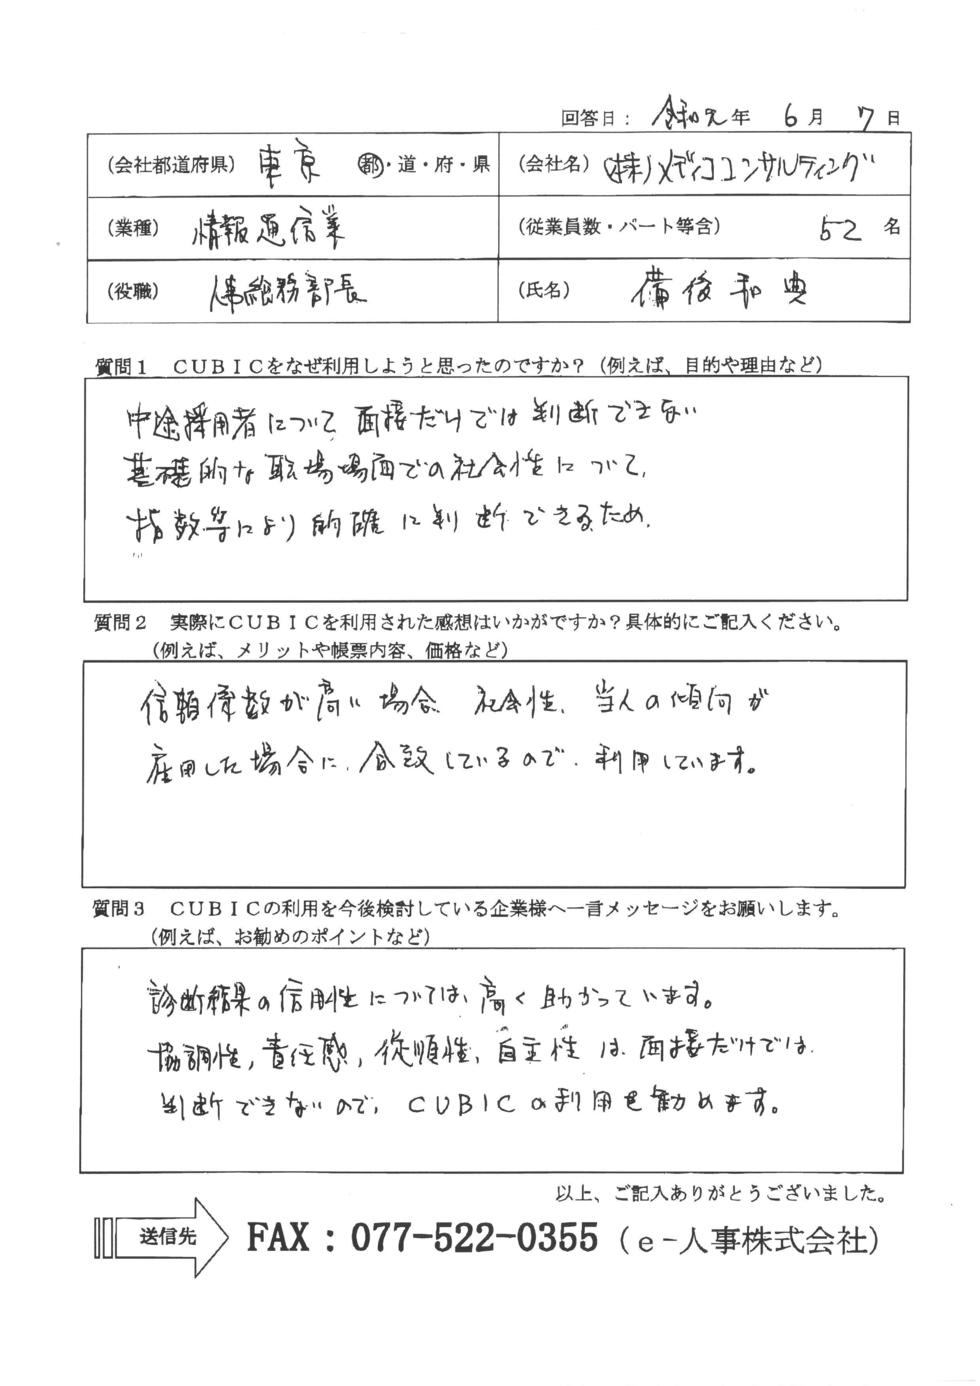 回答日： 令和元年 6月 7日
（会社都道府県） 東京 都・道・府・県
（会社名） (株)メディココンサルティング
（業種） 情報通信業
（従業員数・パート等含） 52 名
（役職） 人事総務部長
（氏名） 備後和典
質問１ ＣＵＢＩＣをなぜ利用しようと思ったのですか？（例えば、目的や理由など）
中途採用者について、面接だけでは判断できない
基礎的な職場場面での社会性について、
指数等により的確に判断できるため、
質問２ 実際にＣＵＢＩＣを利用された感想はいかがですか？具体的にご記入ください。
（例えば、メリットや帳票内容、価格など）
信頼係数が高い場合、社会性、当人の傾向が
雇用した場合に、合致しているので、利用しています。
質問３ ＣＵＢＩＣの利用を今後検討している企業様へ一言メッセージをお願いします。
（例えば、お勧めのポイントなど）
診断結果の信用性については、高く助かっています。
協調性，責任感，従順性，自主性は、面接だけでは、
判断できないので、CUBICの利用を勧めます。
以上、ご記入ありがとうございました。
送信先 FAX：077-522-0355（e-人事株式会社）